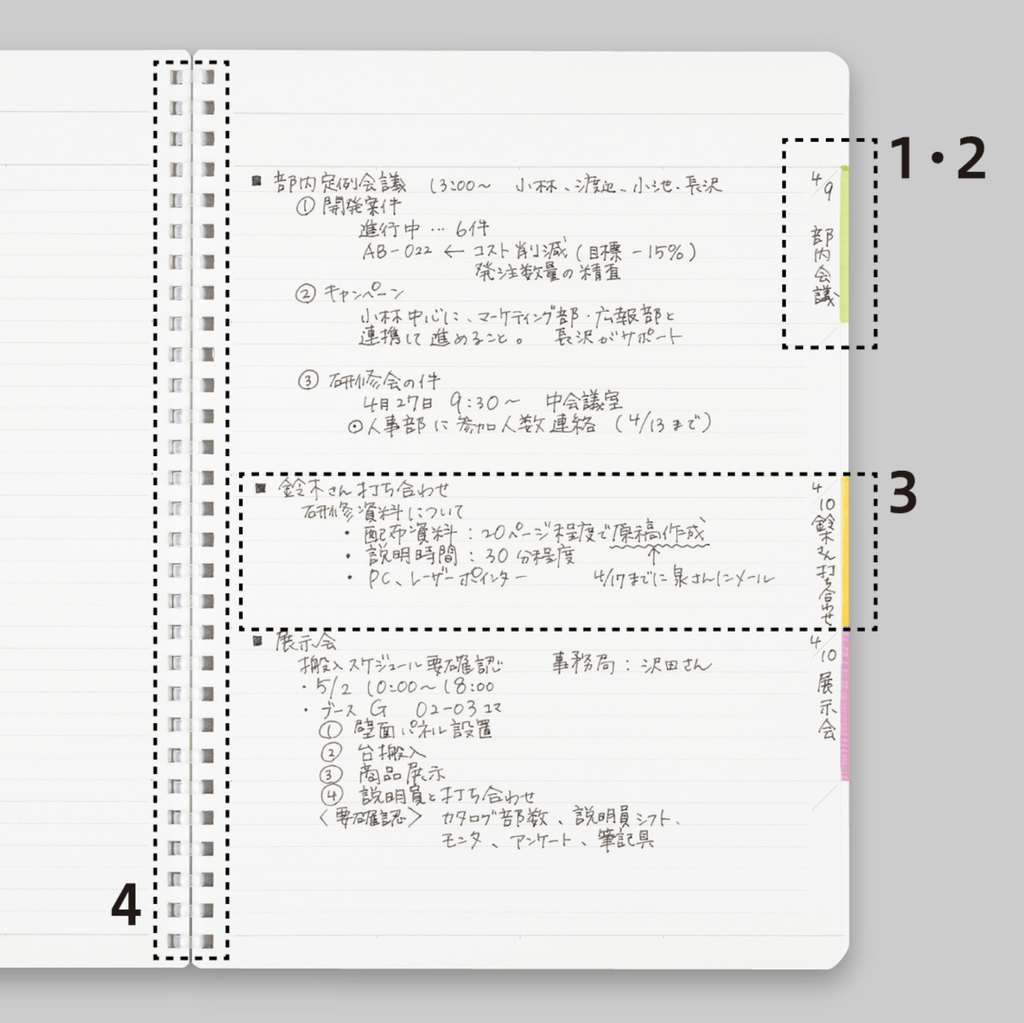 1・2
■ 部内定例会議 13:00〜 小林、渡辺、小池、長沢
① 開発案件
進行中 … 6件
AB-022 ← コスト削減(目標 -15%)
発注数量の精査
② キャンペーン
小林中心に、マーケティング部・広報部と
連携して進めること。 長沢がサポート
③ 研修会の件
4月27日 9:30〜 中会議室
⊙人事部に参加人数連絡 (4/13まで)
4/9 部内会議
3
■ 鈴木さん打ち合わせ
研修資料について
・配布資料:20ページ程度で原稿作成
・説明時間:30分程度 ↑
・PC、レーザーポインター 4/17までに泉さんにメール
4/10 鈴木さん打ち合わせ
■ 展示会
搬入スケジュール要確認 事務局:沢田さん
・5/2 10:00〜18:00
・ブース G 02-03コマ
① 壁面パネル設置
② 台搬入
③ 商品展示
④ 説明員と打ち合わせ
〈要確認〉 カタログ部数、説明員シフト、
モニタ、アンケート、筆記具
4/10 展示会
4